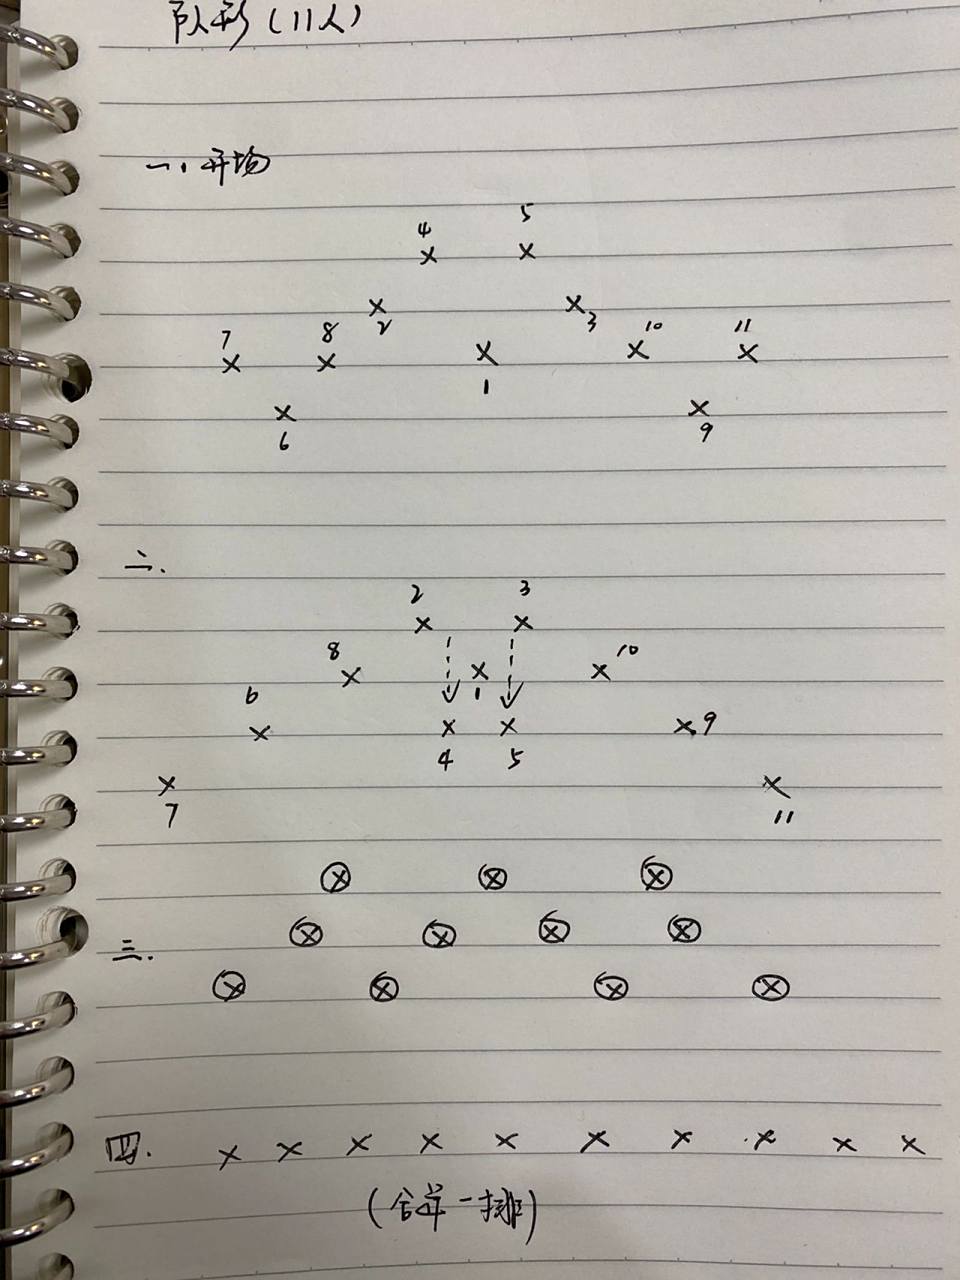 队形(11人)
一、开场
4 5
× ×
× ×
2 3
7 8 10 11
× × × × ×
1
× ×
6 9
二.
2 3
× ×
8 10
× × ×
1
6
× × × × 9
4 5
× ×
7 11
ⓧ ⓧ ⓧ
三. ⓧ ⓧ ⓧ ⓧ
ⓧ ⓧ ⓧ ⓧ
四. × × × × × × × × × ×
(合并一排)